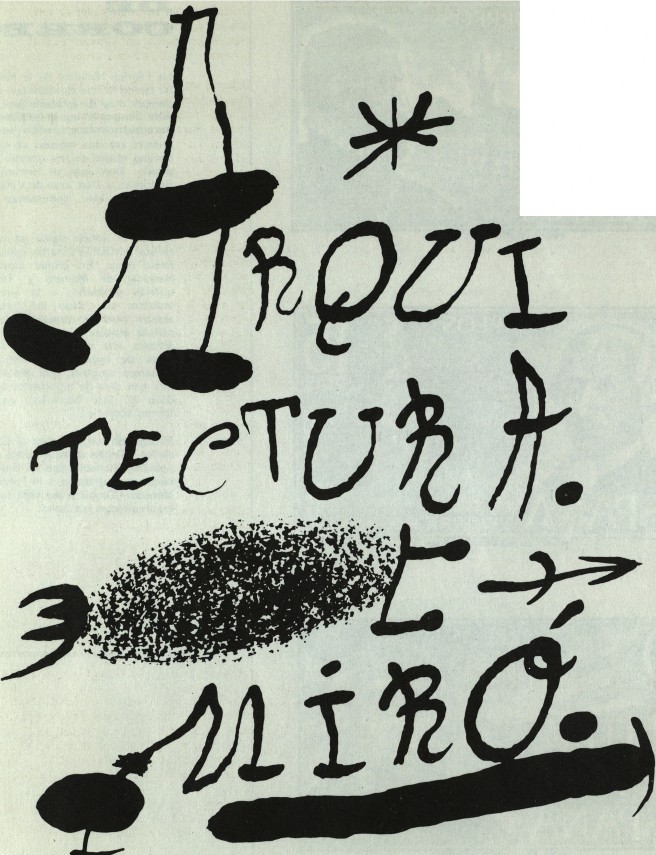 ARQUI
TECTURA.
MIRÓ.